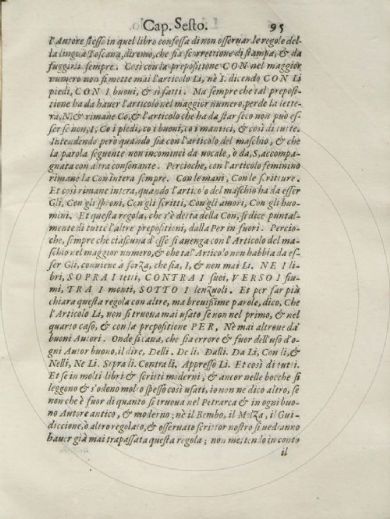 Cap. Sesto. 95
l'Autore stesso in quel libro confessa di non osseruar le regole del-
la lingua Toscana, diremo, che sia scorrettione di stampa, & da
fuggirsi sempre. Così con la prepositione CON nel maggior
numero non si mette mai l'articolo Li, nè I. dicendo CON Li
piedi, CON I buoni, & sì fatti. Ma sempre che tal preposi-
tione ha da hauer l'articolo nel maggior numero, perde la lette-
ra, N, & rimane Co, & l'articolo che ha da star seco non può es-
ser se non, I, Co i piedi, co i buoni, co i mantici, & così di tutte.
Intendendo però quando sia con l'articolo del maschio, & che
la parola seguente non incominci da uocale, ò da, S, accompa-
gnata con altra consonante. Percioche, con l'articolo feminino
rimane la Con intera sempre. Con le mani, Con le scritture.
Et così rimane intera, quando l'articolo del maschio ha da esser
Gli, Con gli sproni, Con gli scritti, Con gli amori, Con gli huo-
mini. Et questa regola, che s'è detta della Con, si dice puntal-
mente di tutte l'altre prepositioni, dalla Per in fuori. Percio-
che, sempre che ciascuna d'esse si auenga con l'Articolo del ma-
schio nel maggior numero, & che tal'Articolo non habbia da es-
ser Gli, conuiene à forza, che sia, I, & non mai Li. NE I li-
bri, SOPRA I tetti, CONTRA I suoi, VERSO I fiu-
mi, TRA I monti, SOTTO I lenzuoli. Et per far più
chiara questa regola con altre, ma breuissime parole, dico, Che
l'Articolo Li, non si truoua mai usato se non nel primo, & nel
quarto caso, & con la prepositione PER, Nè mai altroue da
buoni Autori. Onde si cana, che sia errore & fuor dell'uso d'o-
gni Autor buono, il dire, Delli. De li. Dalli. Da Li, Con li, &
Nelli, Ne Li. Sopra li. Contra li, Appresso Li. Et così di tutti.
Et se in molti libri & scritti moderni, & ancor nelle bocche si
leggono & s'odono molto spesso così usati, io non ne dico altro, se
non che è fuor di quanto si truoua nel Petrarca & in ogni buo-
no Autore antico, & moderno; nè il Bembo, il Molza, il Gui-
diccione, ò altro regolato, & osseruato scrittor nostro si uedranno
hauer già mai trapassata questa regola; non mettendo in conto
il